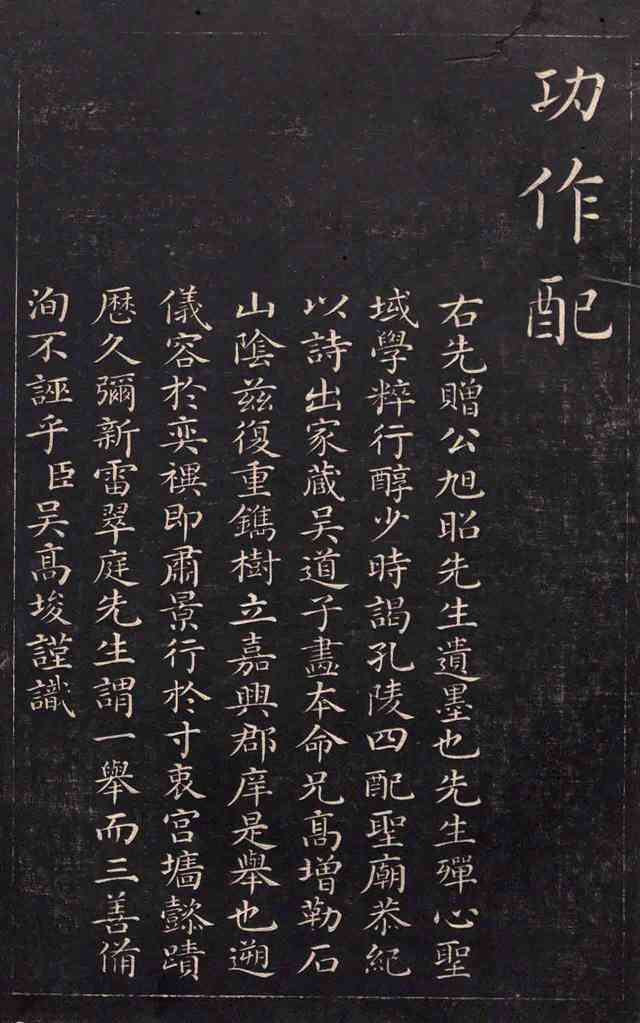 功作配
右先贈公旭昭先生遺墨也先生殫心聖
域學粹行醇少時謁孔陵四配聖廟恭紀
以詩出家蔵吴道子畵本命兄髙增勒石
山陰兹復重鐫樹立嘉興郡庠是舉也遡
儀容於奕禩即肅景行於寸衷宫墻懿蹟
厯久彌新雷翠庭先生謂一舉而三善俻
洵不誣乎臣吴髙埈謹識